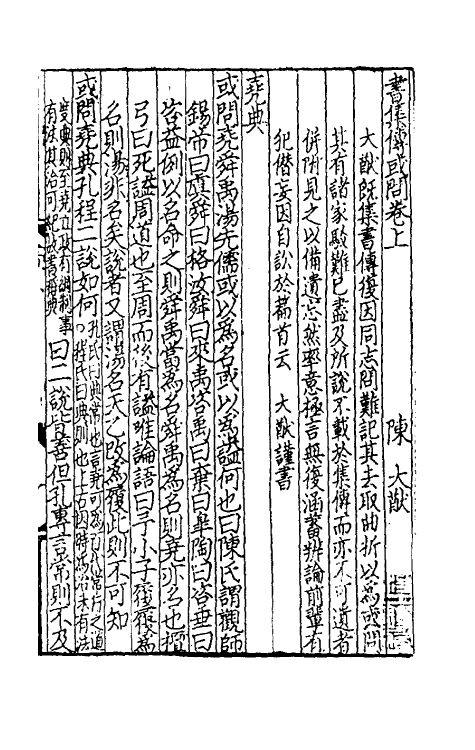 書集傳或問卷上
陳大猷
大猷既集書傳復因同志問難記其去取曲折以為或問
其有諸家駁難已盡及所說不載於集傳而亦不可遺者
併附見之以備遺忘然率意極言無復涵蓄辨論前輩有
犯僭妄因自訟於篇首云 大猷謹書
堯典
或問堯舜禹湯先儒或以為名或以為謚何也曰陳氏謂觀師
錫帝曰虞舜曰格汝舜曰來禹咨禹曰棄曰臯陶曰咨垂曰
咨益例以名命之則舜禹當為名舜禹為名則堯亦名也檀
弓曰死謚周道也至周而後有謚唯論語曰予小子履履為
名則湯非名矣說者又謂湯名天乙改為履此則不可知
或問堯典孔程二說如何孔氏曰典常也言堯可為百代常行之道程氏曰典則也上古因時為治未有法
度典則至堯立政有綱制事有法其治可紀故書稱典曰二說皆善但孔專言常則不及